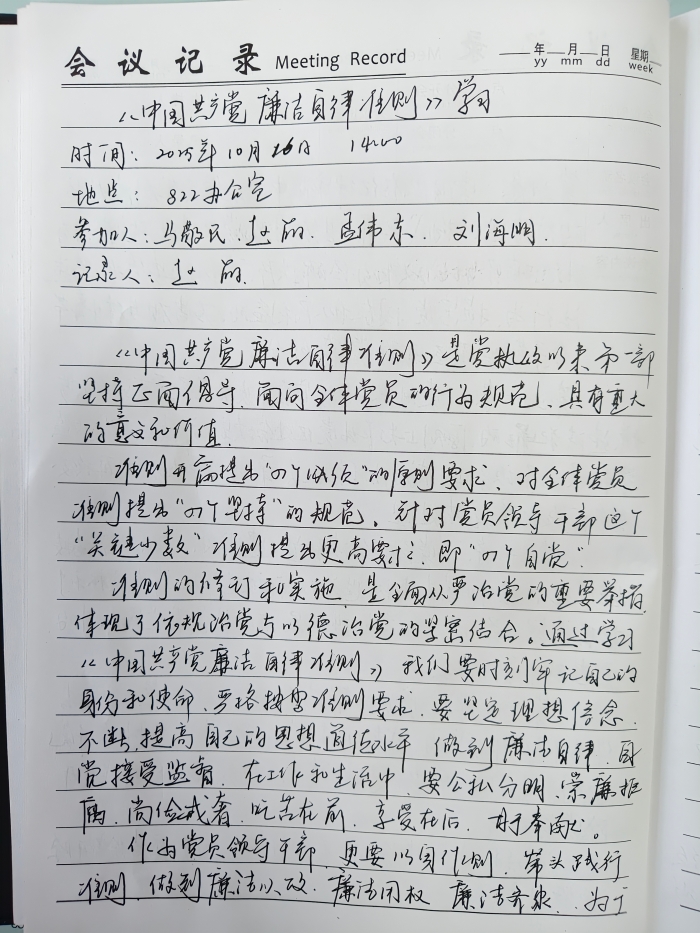 会议记录 Meeting Record 年 yy 月 mm 日 dd 星期 week
《中国共产党廉洁自律准则》学习
时间：2025年10月16日 14:00
地点：822办公室
参加人：马敬民、赵丽、孟伟东、刘海明
记录人：赵丽
《中国共产党廉洁自律准则》是党执政以来第一部
坚持正面倡导、面向全体党员的行为规范、具有重大
的意义和价值.
准则开篇提出“四个必须”的原则要求、对全体党员
准则提出“四个坚持”的规范、针对党员领导干部这个
“关键少数”准则提出更高要求、即“四个自觉”.
准则的修订和实施、是全面从严治党的重要举措,
体现了依规治党与以德治党的紧密结合。通过学习
《中国共产党廉洁自律准则》我们要时刻牢记自己的
身份和使命、严格按照准则要求、要坚定理想信念、
不断提高自己的思想道德水平 做到廉洁自律、自
觉接受监督、在工作和生活中、要公私分明、崇廉拒
腐、尚俭戒奢、吃苦在前、享受在后、甘于奉献。
作为党员领导干部、更要以身作则、带头践行
准则、做到廉洁从政、廉洁用权 廉洁齐家、为